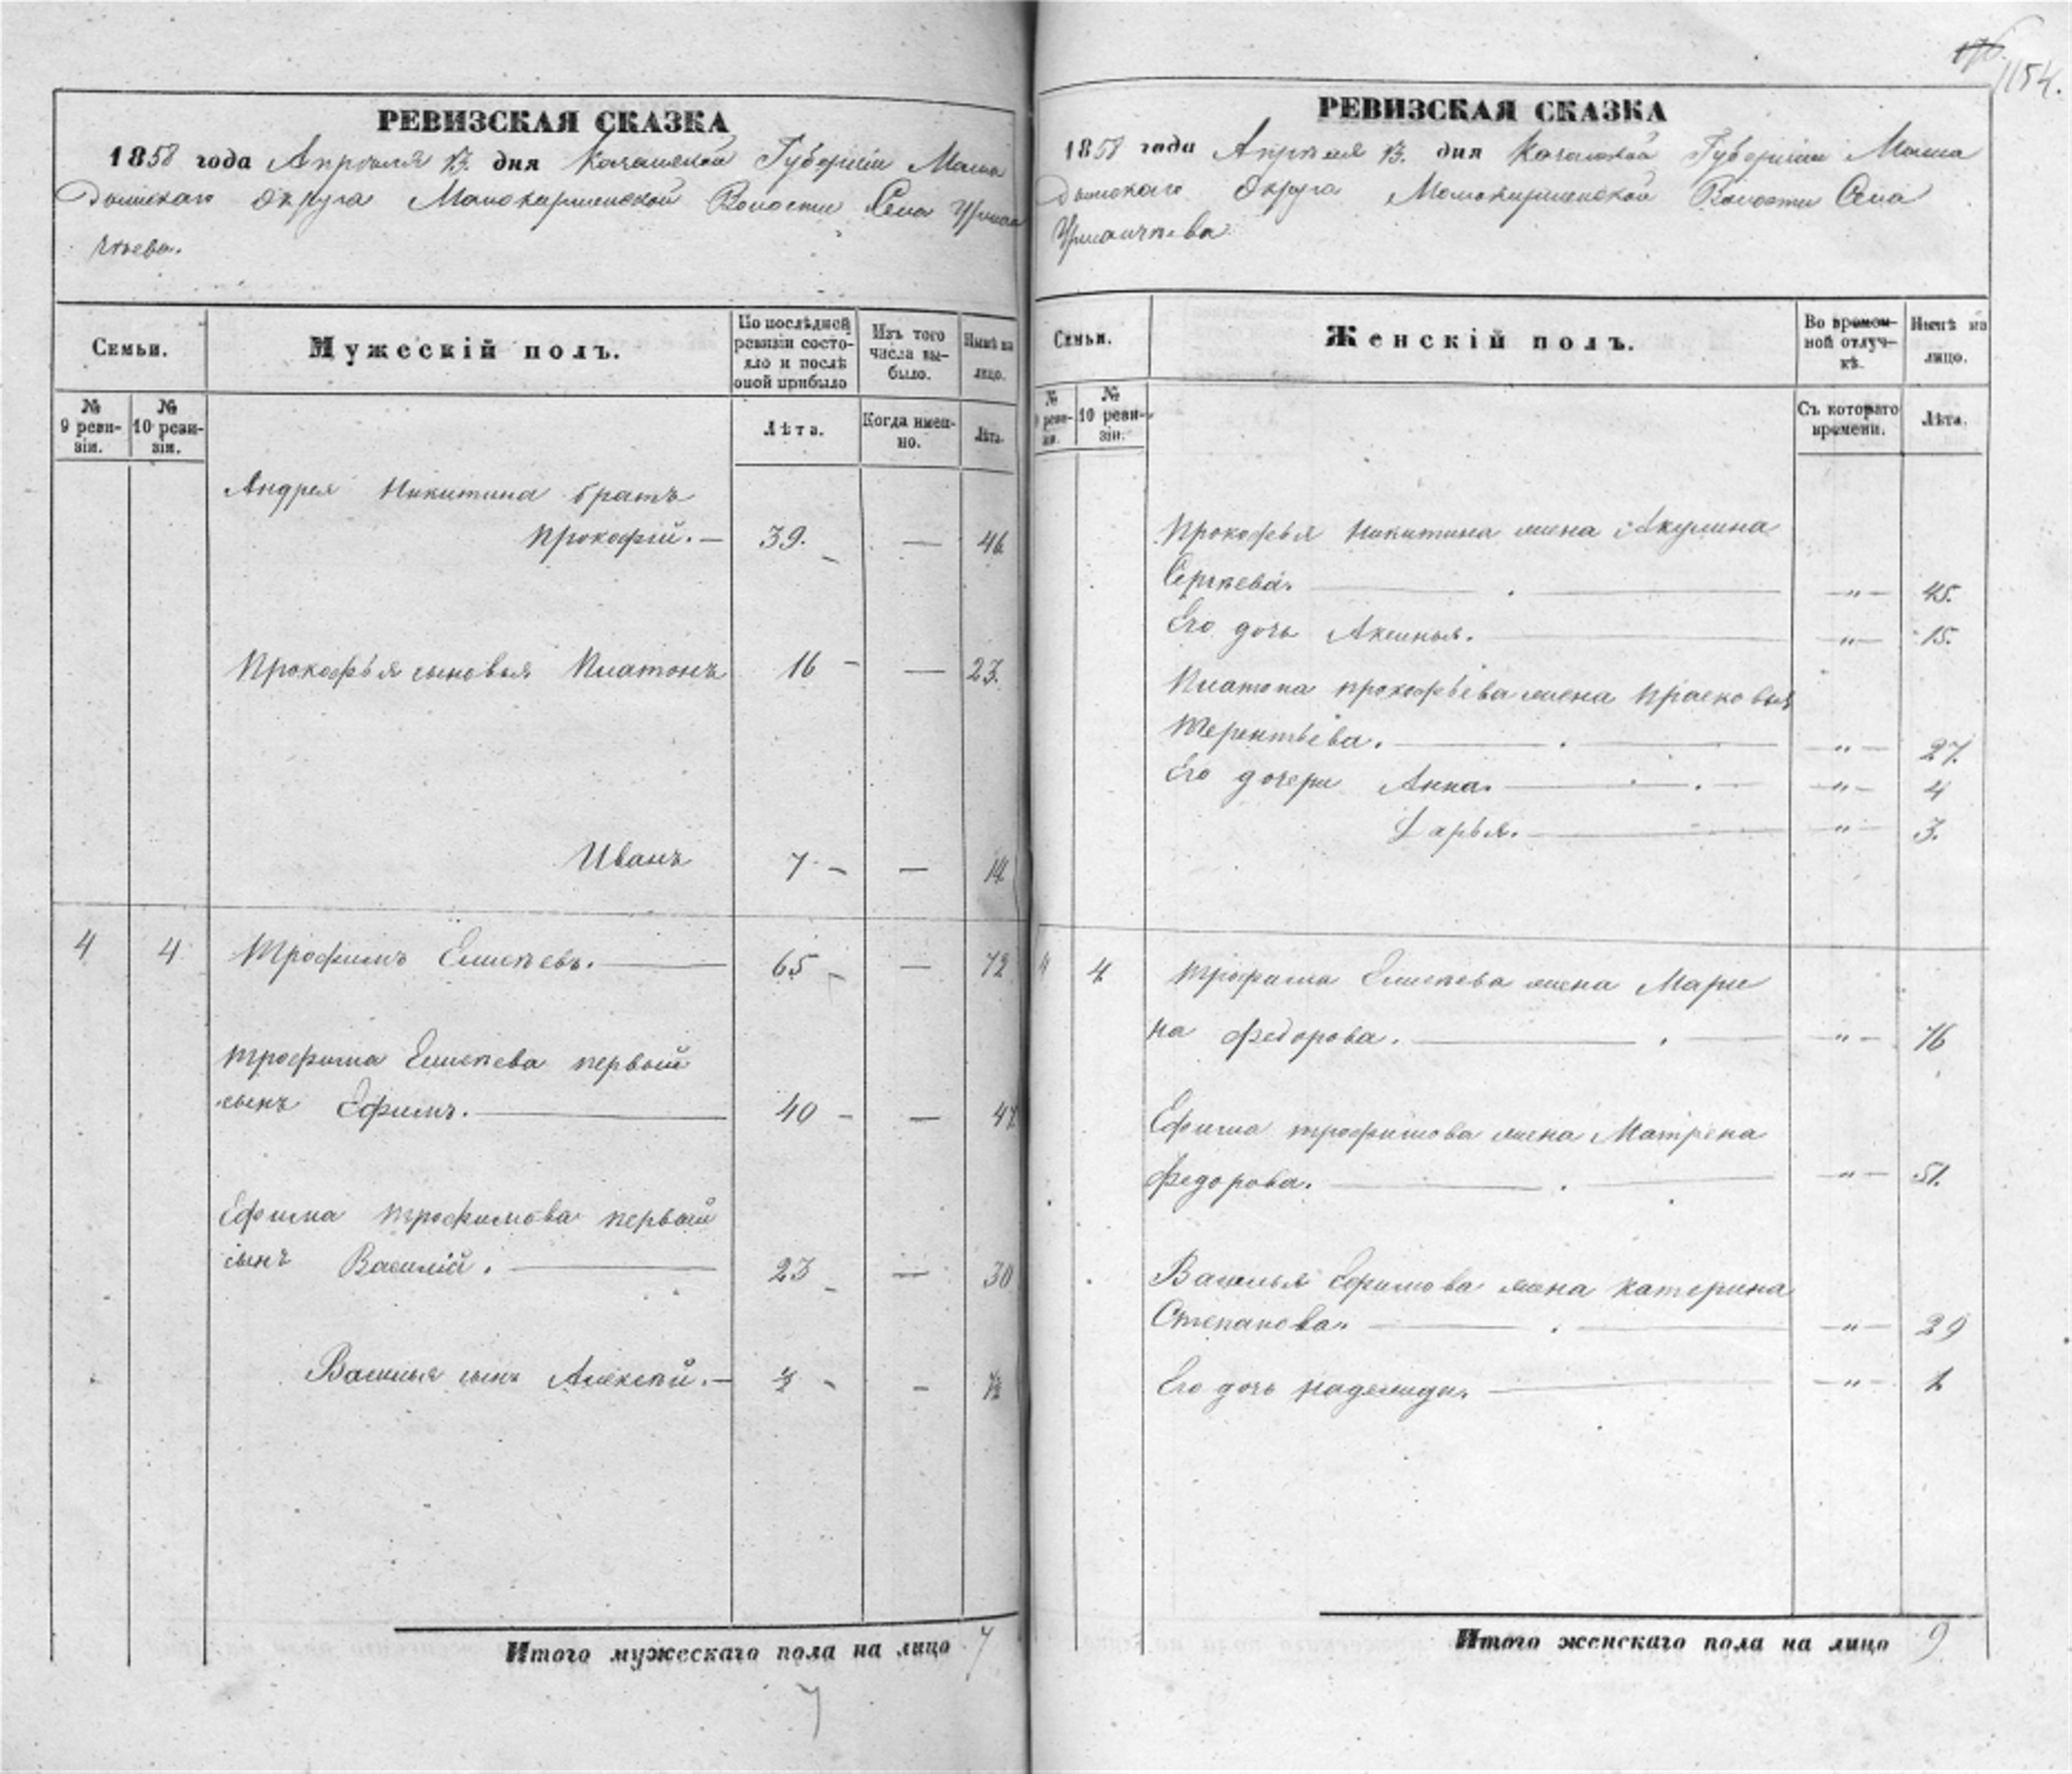 1154.
РЕВИЗСКАЯ СКАЗКА
1858 года Апреля 13. дня Казанской Губерніи Мама
дышскаго Округа Мамокирменской Волости Села Урман
чѣева.
Семьи.
Мужескій полъ.
По послѣдней ревизіи состояло и послѣ оной прибыло
Изъ того числа выбыло.
Нынѣ на лицо.
№ 9 ревизіи.
№ 10 ревизіи.
Лѣта.
Когда именно.
Лѣта.
Андрея Никитина братъ
Прокофій. — 39. — — 46
Прокофья сыновья Платонъ 16 — — 23.
Иванъ 7 — — 14
4 4 Трофимъ Елисѣевъ. — 65 — — 72
Трофима Елисѣева первый
сынъ Ефимъ. — 40 — — 47
Ефима Трофимова первый
сынъ Василій. — 23 — — 30
Василья сынъ Алексѣй. — — —
Итого мужескаго пола на лицо 7
7
РЕВИЗСКАЯ СКАЗКА
1858 года Апрѣля 13. дня Казанской Губерніи Мама
дышскаго Округа Мамокирменской Волости Села
Урманчѣева
Семьи.
Женскій полъ.
Во временной отлучкѣ.
Нынѣ на лицо.
№ 9 ревизіи.
№ 10 ревизіи.
Съ котораго времени.
Лѣта.
Прокофья Никитина жена Акулина
Сергѣева. — " — 45.
Его дочь Аксинья. — " — 15.
Платона Прокофьева жена Прасковья
Терентьева. — " — 27.
Его дочери Анна. — " — 4
Дарья. — " — 3.
4 4 Трофима Елисѣева жена Мари
на Федорова. — " — 76
Ефима Трофимова жена Матрена
Федорова. — " — 51.
Василья Ефимова жена Катерина
Степанова. — " — 29
Его дочь Надежда. — " — 1
Итого женскаго пола на лицо 9